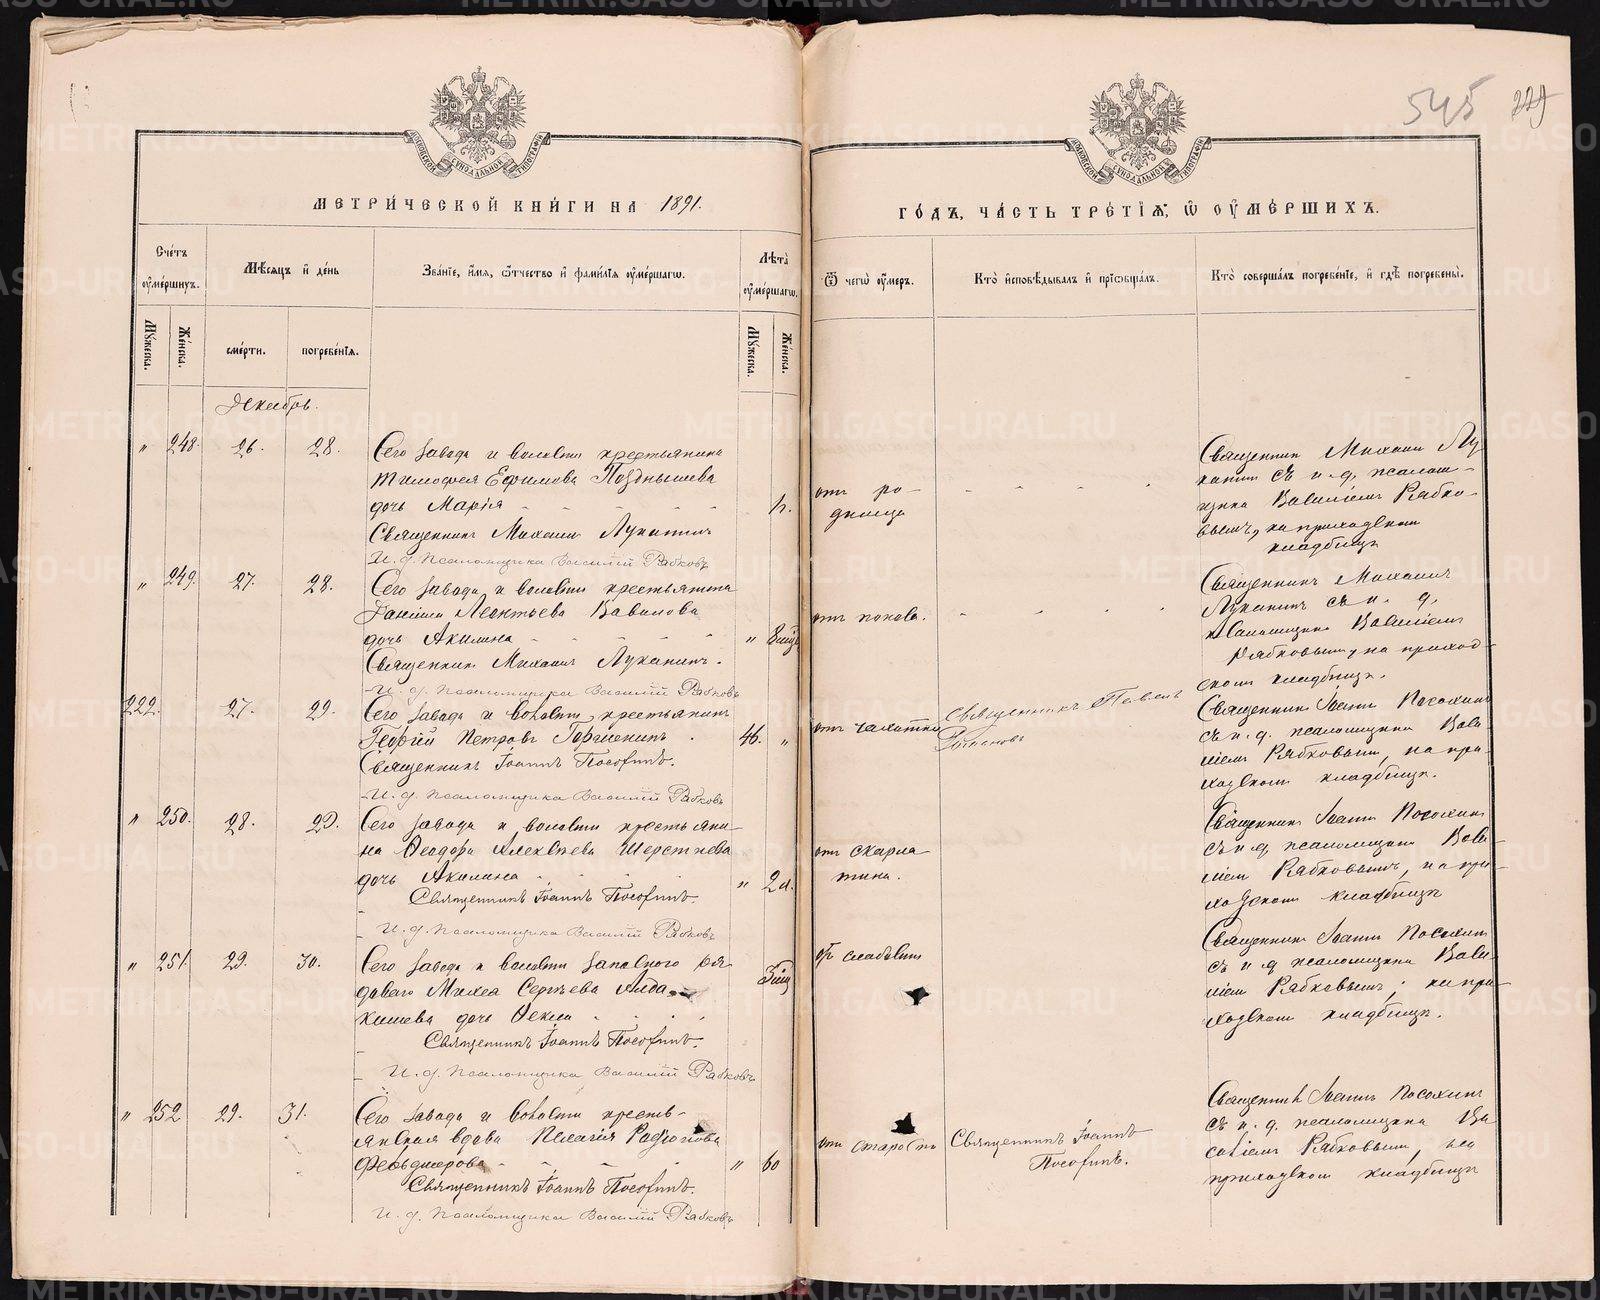 545
МЕТРИ́ЧЕСКОЙ КНИ́ГИ НА 1891.
ГО́ДЪ, ЧА́СТЬ ТРЕ́ТІѦ, Ѡ ОУ҆МЕ́РШИХЪ.
Сче́тъ оу҆ме́ршихъ.
Мѣ́сѧцъ и҆ де́нь
Зва́нїе, и҆́мѧ, ѻ҆́тчество и҆ фами́лїѧ оу҆ме́ршагѡ.
Лѣта̀ оу҆ме́ршагѡ.
Ѿ чегѡ̀ оу҆́меръ.
Кто̀ и҆сповѣ́дывалъ и҆ прїѡбща́лъ.
Кто̀ соверша́лъ погребе́нїе, и҆ гдѣ̀ погребены̀.
Мꙋ́жеска.
Же́нска.
сме́рти.
погребе́нїѧ.
Мꙋ́жеска.
Же́нска.
Декабрь.
" 248. 26. 28.
Сего завода и волости крестьянина
Тимофея Ефимова Позднышева
дочь Марія
Священникъ Михаилъ Луканинъ
И. д. псаломщика Василій Рябковъ
отъ ро-
димца
Священник Михаил Лу
канин съ и. д. псалом-
щика Василіем Рябко-
вымъ, на приходском
кладбище
" 249. 27. 28.
Сего завода и волости крестьянина
Даниила Леонтьева Вавилова
дочь Акилина " 8 мѣс
Священник Михаил Луканинъ.
И. д. псаломщика Василій Рябковъ
отъ поноса.
Священникъ Михаил
Луканинъ съ и. д.
псаломщика Василіем
Рябковым, на приход-
ском кладбище.
222. 27. 29.
Сего завода и волости крестьянин
Георгій Петровъ 46. "
Священникъ Іоаннъ Посохинъ.
И. д. псаломщика Василій Рябковъ
отъ чахотки
Священникъ Павелъ
Священник Іоанн Посохин
съ и. д. псаломщика Васи
ліем Рябковым, на при-
ходском кладбище.
" 250. 28. 29.
Сего завода и волости крестьяни-
на Ѳеодора Алексѣева Шерстнева
дочь Акилина " 2 д.
Священникъ Іоаннъ Посохинъ.
И. д. псаломщика Василій Рябковъ
отъ скарла-
тина.
Священник Іоанн Посохин
съ и. д. псаломщика Васи
ліем Рябковымъ, на при-
ходском кладбище
" 251. 29. 30.
Сего завода и волости запасного ря
доваго Сергѣева
дочь Ѳекла
Священникъ Іоаннъ Посохинъ.
И. д. псаломщика Василій Рябковъ
отъ слабости
Священник Іоанн Посохин
съ и. д псаломщика Васи
ліем Рябковымъ, на при-
ходском кладбище.
" 252 29. 31.
Сего завода и волости кресть-
янская вдова Пелагія Радіонова
" 60
Священникъ Іоаннъ Посохинъ.
И. д. псаломщика Василій Рябковъ
отъ старости
Священникъ Іоаннъ
Посохинъ.
Священник Іоанн Посохин
съ и. д. псаломщика Ва
силіем Рябковым, на
приходском кладбище
METRIKI.GASO-URAL.RU